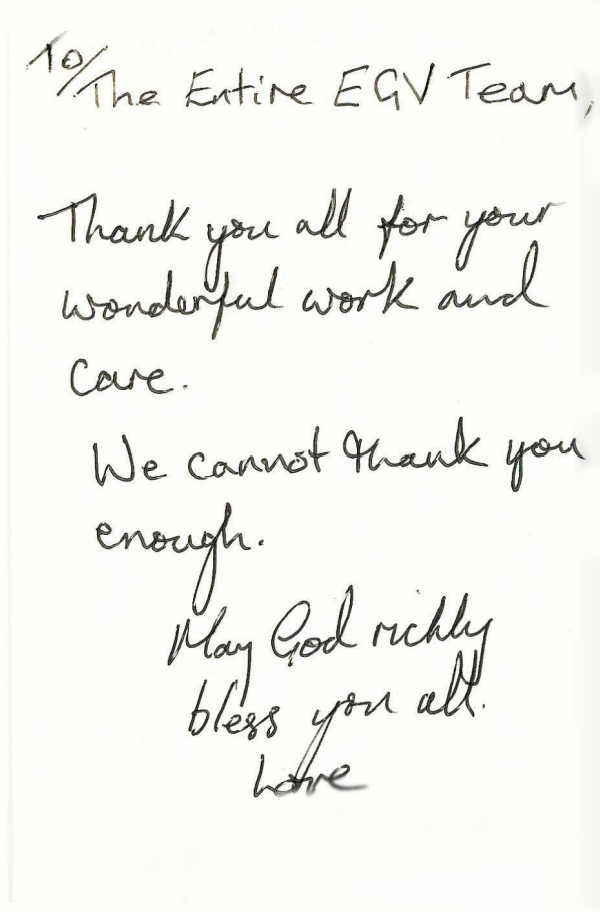 To/The Entire EGV Team,
Thank you all for your
wonderful work and
care.
We cannot thank you
enough.
May God richly
bless you all.
Love